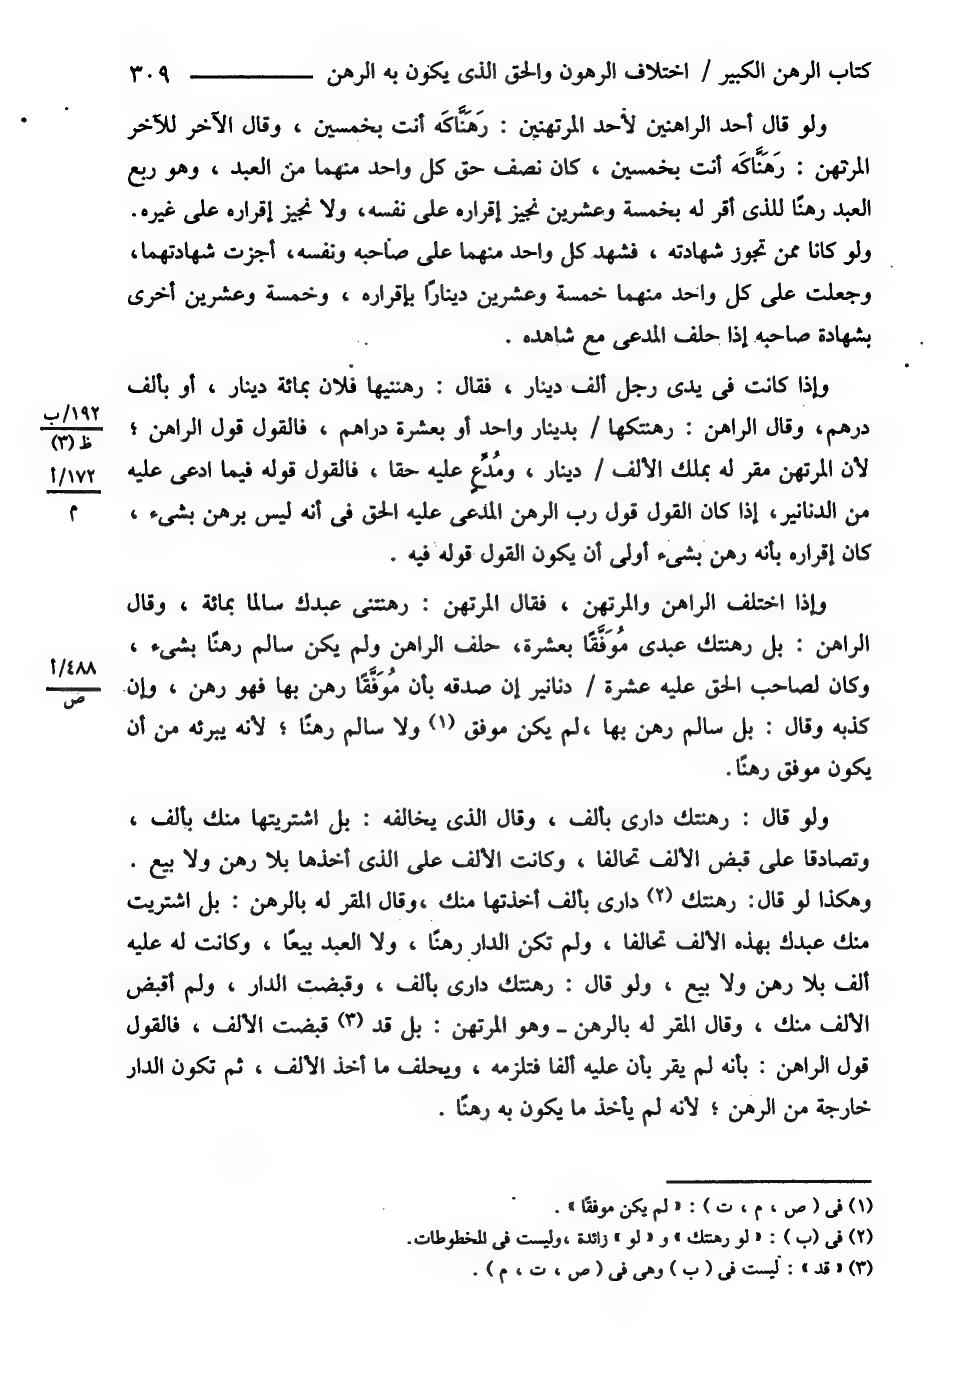 كتاب الرهن الكبير / اختلاف الرهون والحق الذى يكون به الرهن ــــــــــ ٣٠٩
ولو قال أحد الراهنين لأحد المرتهنين : رَهَنَّاكَه أنت بخمسين ، وقال الآخر للآخر
المرتهن : رَهَنَّاكَه أنت بخمسين ، كان نصف حق كل واحد منهما من العبد ، وهو ربع
العبد رهنًا للذى أقر له بخمسة وعشرين نجيز إقراره على نفسه، ولا نجيز إقراره على غيره.
ولو كانا ممن تجوز شهادته ، فشهد كل واحد منهما على صاحبه ونفسه، أجزت شهادتهما،
وجعلت على كل واحد منهما خمسة وعشرين دينارًا بإقراره ، وخمسة وعشرين أخرى
بشهادة صاحبه إذا حلف المدعى مع شاهده .
وإذا كانت فى يدى رجل ألف دينار ، فقال : رهننيها فلان بمائة دينار ، أو بألف
درهم، وقال الراهن : رهنتكها / بدينار واحد أو بعشرة دراهم ، فالقول قول الراهن ؛
لأن المرتهن مقر له بملك الألف / دينار ، ومُدَّعٍ عليه حقا ، فالقول قوله فيما ادعى عليه
من الدنانير، إذا كان القول قول رب الرهن المدعى عليه الحق فى أنه ليس برهن بشىء ،
كان إقراره بأنه رهن بشىء أولى أن يكون القول قوله فيه .
١٩٢/ب
ظ (٣)
١٧٢/أ
م
وإذا اختلف الراهن والمرتهن ، فقال المرتهن : رهنتنى عبدك سالما بمائة ، وقال
الراهن : بل رهنتك عبدى مُوَفَّقًا بعشرة، حلف الراهن ولم يكن سالم رهنًا بشىء ،
وكان لصاحب الحق عليه عشرة / دنانير إن صدقه بأن مُوَفَّقًا رهن بها فهو رهن ، وإن
كذبه وقال : بل سالم رهن بها ،لم يكن موفق (١) ولا سالم رهنًا ؛ لأنه يبرئه من أن
يكون موفق رهنًا.
٤٨٨/أ
ص
ولو قال : رهنتك دارى بألف ، وقال الذى يخالفه : بل اشتريتها منك بألف ،
وتصادقا على قبض الألف تحالفا ، وكانت الألف على الذى أخذها بلا رهن ولا بيع .
وهكذا لو قال: رهنتك (٢) دارى بألف أخذتها منك ،وقال المقر له بالرهن : بل اشتريت
منك عبدك بهذه الألف تحالفا ، ولم تكن الدار رهنًا ، ولا العبد بيعًا ، وكانت له عليه
ألف بلا رهن ولا بيع ، ولو قال : رهنتك دارى بألف ، وقبضت الدار ، ولم أقبض
الألف منك ، وقال المقر له بالرهن ـ وهو المرتهن : بل قد (٣) قبضت الألف ، فالقول
قول الراهن : بأنه لم يقر بأن عليه ألفا فتلزمه ، ويحلف ما أخذ الألف ، ثم تكون الدار
خارجة من الرهن ؛ لأنه لم يأخذ ما يكون به رهنًا .
(١) فى ( ص ، م ، ت ) : « لم يكن موفقًا » .
(٢) فى (ب ) : « لو رهنتك » و « لو » زائدة ،وليست فى المخطوطات.
(٣) « قد » : ليست فى ( ب ) وهى فى ( ص ، ت ، م ) .